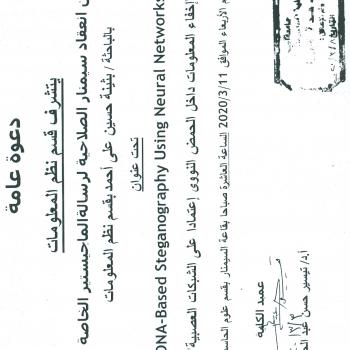 دعوة عامة
يتشرف قسم نظم المعلومات
انعقاد سيمنار الصلاحية لرسالة الماجيستير الخاصة
بالباحثة / بثينة حسين على أحمد بقسم نظم المعلومات
تحت عنوان
DNA-Based Steganography Using Neural Networks
إخفاء المعلومات داخل الحمض النووى إعتمادا على الشبكات العصبية
الأربعاء الموافق 2020/3/11 الساعة العاشرة صباحا بقاعة السيمنار بقسم علوم الحاسب
عميد الكلية
أ.د/ تيسير حسن عبد